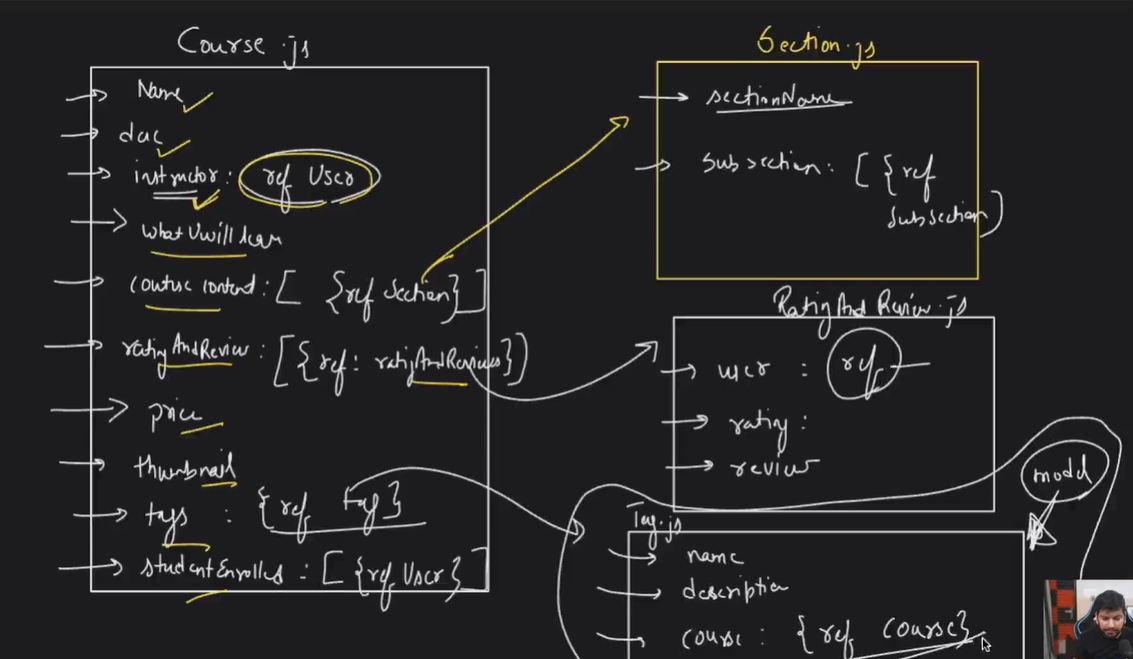 Course.js
Name
desc
instructor: ref User
what U will learn
course content: [ {ref Section} ]
ratingAndReview: [ {ref: ratingAndReviews} ]
price
thumbnail
tags : {ref Tag}
studentEnrolled : [ {ref User} ]
Section.js
sectionName
Subsection: [ {ref
subsection}
RatingAndReview.js
user : ref
rating:
review
model
Tag.js
name
description
course : {ref course}